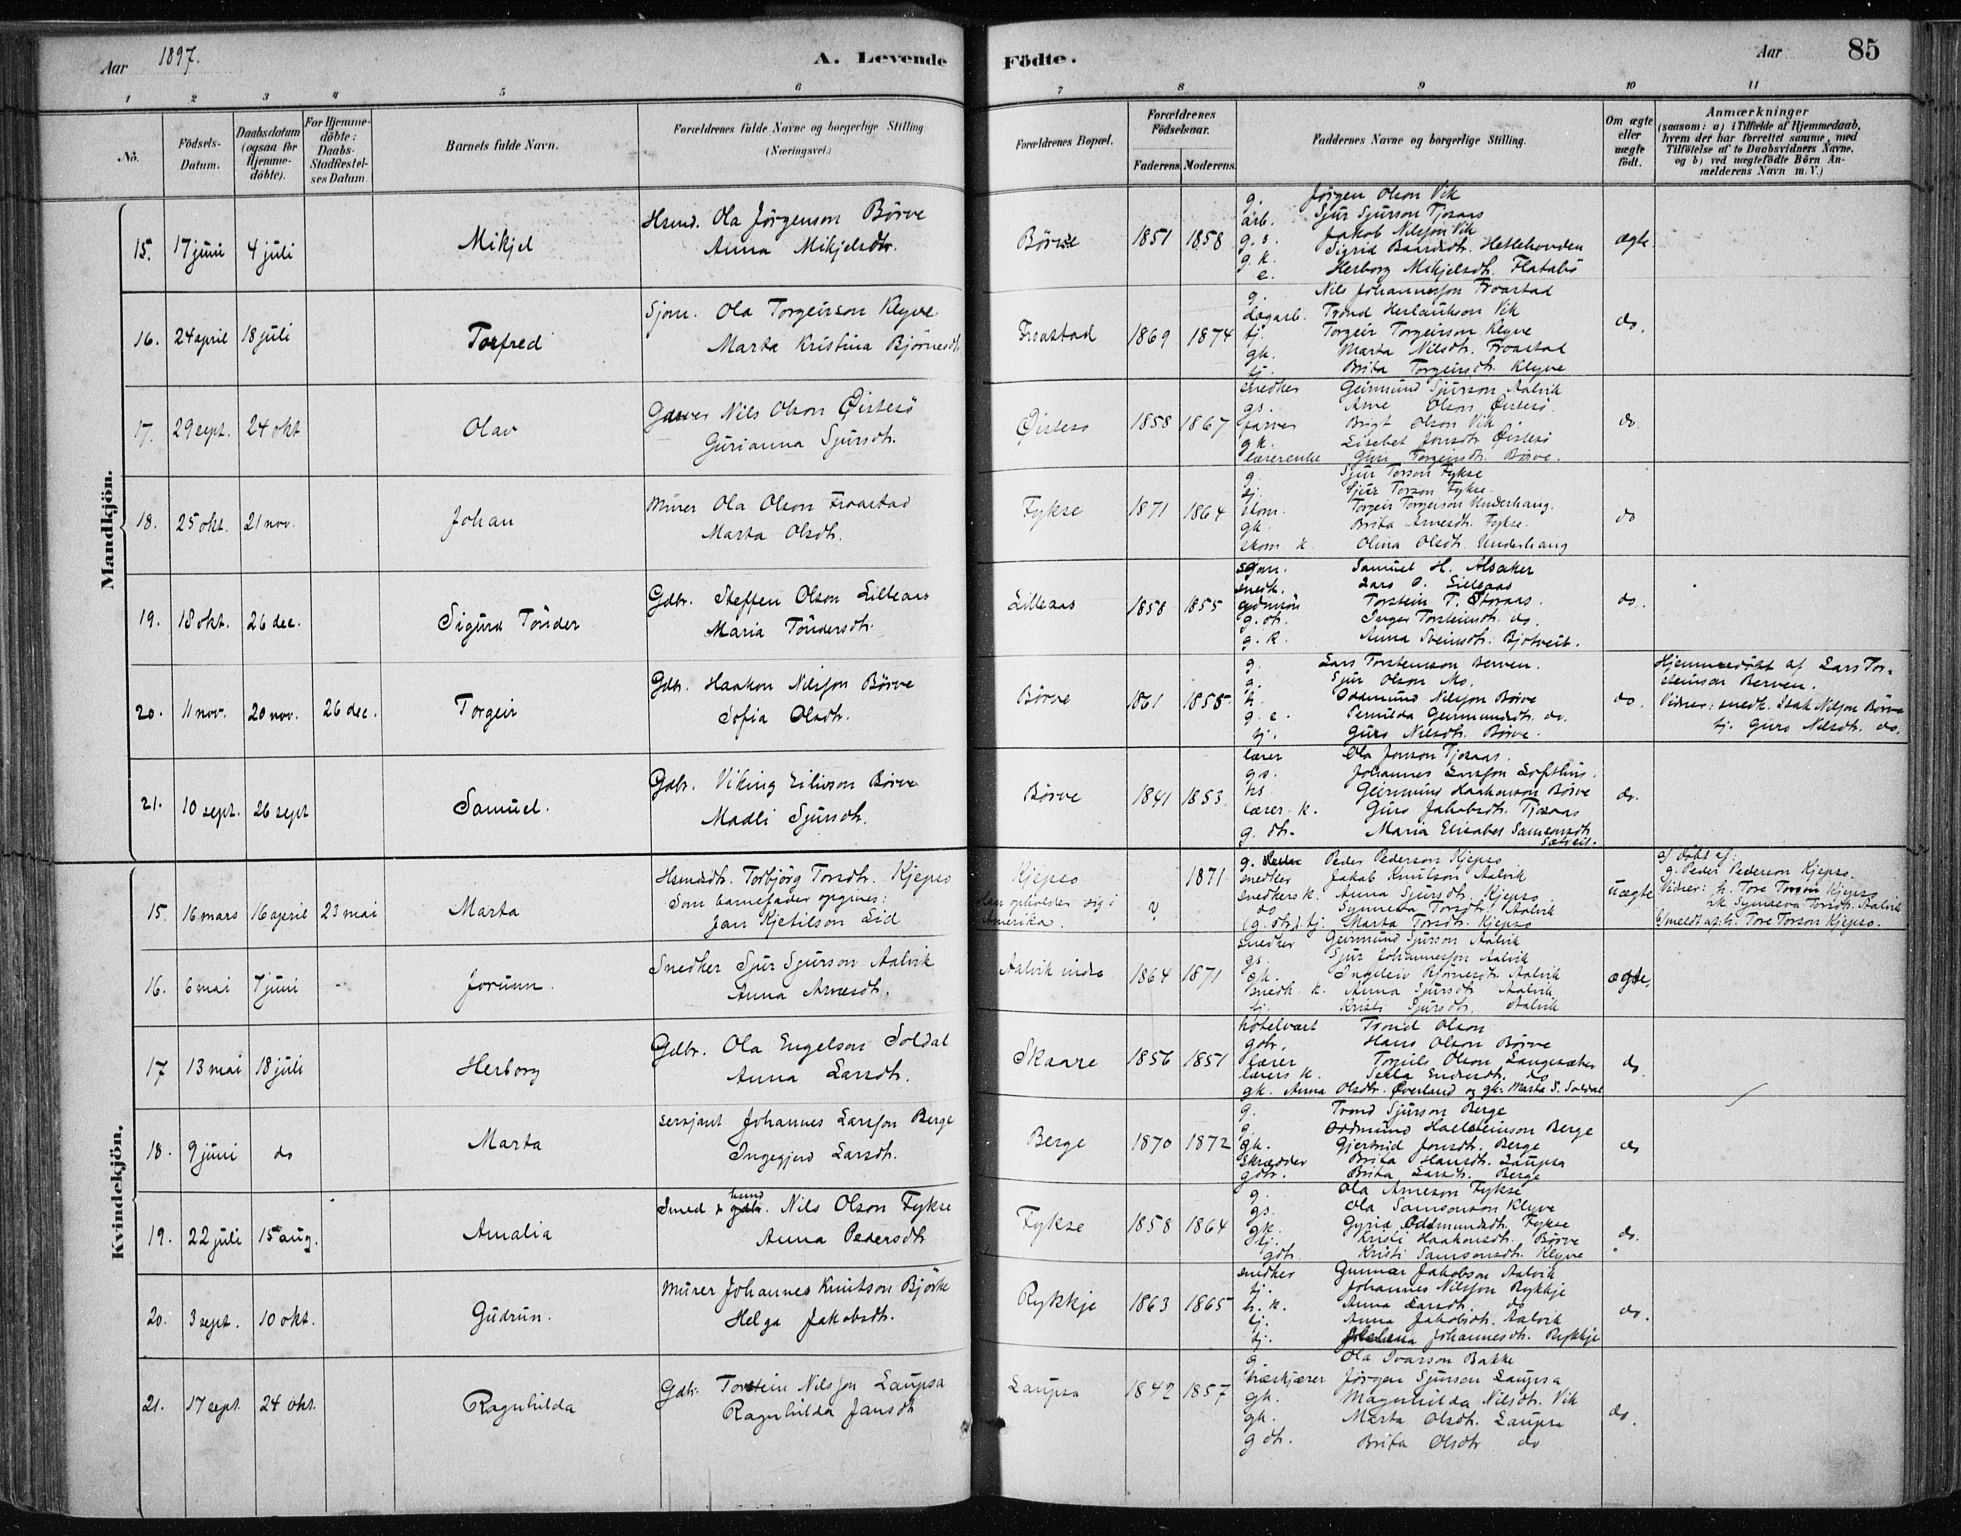 Aar 1897. A. Levende Födte. Aar 85
1 2 3 4 5 6 7 8 9 10 11
No. Födsels-Datum. Daabsdatum (ogsaa for Hjemme-döbte). For Hjemme-döbte: Daabs-Stadfestel-ses Datum. Barnets fulde Navn. Forældrenes fulde Navne og borgerlige Stilling (Næringsvei.) Forældrenes Bopæl. Forældrenes Födselsaar. Faderens. Moderens. Faddernes Navne og borgerlige Stilling. Om ægte eller uægte födt. Anmærkninger (saasom: a) i Tilfælde af Hjemmedaab, hvem der har forrettet samme, med Tilföielse af to Daabsvidners Navne, og b) ved uægtefödte Börn An-melderens Navn m. V.)
Mandkjön.
15. 17 juni 4 juli Mikjel Hsmd. Ola Jörgenson Börve
Anna Mikjelsdtr. Börve 1851 1858 ægte
g. Jörgen Olson Vik
arb. Sjur Sjurson Tjoraas
g. s. Jakob Nilsson Vik
g. k. Sigrid Baardsdtr. Hetlehovden
e. Herborg Mikjelsdtr. Flatabö
16. 24 april 18 juli Torfred Sjom. Ola Torgeirson Klyve
Marta Kristina Björnesdtr. Froastad 1869 1874 do.
g. Nils Johannesson Froastad
dagarb. Trond Herlaukson Vik
tj. Torgeir Torgeirson Klyve
gk. Marta Nilsdtr. Froastad
tj. Brita Torgeirsdtr. Klyve
17. 29 sept. 24 okt Olav Garver Nils Olson Öistesö
Gurianna Sjursdtr. Öisteso 1858 1867 do.
snedker Geirmund Sjurson Aalvik
gs. Arne Olson Öistesö.
farver Brigt Olson Vik
gk. Lisabet Jonsdtr. Öistesö
lærerenke Guri Torgeirsdtr. Börve.
18. 25 okt. 21 nov. Johan Murer Ola Olson Froastad
Marta Olsdtr. Fykse 1871 1864 do
g. Sjur Torson Fykse
tj. Sjur Torson Fykse.
skom. Torgeir Torgerson Underhaug.
gk. Brita Arnesdtr. Fykse.
skom. k. Olina Olsdtr. Underhaug
19. 18 okt. 26 dec. Sigurd Tönder Gdbr. Steffen Olson Lilleaas
Maria Töndersdtr. Lilleaas 1858 1855 do.
sjom. Samuel H. Alsaker
snedk. Lars O. Lilleaas
gydmsön Torstein T. Storaas.
g. dtr. Inger Torsteinsdtr. do.
g. k. Anna Sveinsdtr. Bjotveit.
20. 11 nov. 20 nov. 26 dec. Torgeir Gdbr. Haakon Nilsson Börve
Sofia Olsdtr. Börve 1861 1855 do.
g. Lars Torsteinson Berven.
g. Sjur Olson Mo.
h. Oddmund Nilsson Börve
g. e. Pernilda Geirmundsdtr. do.
tj. Guro Nilsdtr. Börve.
Hjemmedöbt af Lars Tor-
steinson Berven.
Vidner: snedk. Isak Nilson Börve
tj. Guro Nilsdtr. do.
21. 10 sept. 26 sept Samuel. Gdbr. Viking Eilivson Börve
Madli Sjursdtr. Börve 1841 1853. do.
lærer Ola Jonson Tjoraas.
gs. Johannes Larsson Lofthus.
hs. Geirmund Haakonson Börve
lærer. k. Guro Jakobsdtr. Tjoraas
g. dtr. Maria Elisabet Samsonsdtr
Sætveit.
Kvindekjön.
15. 16 mars 16 april 23 mai Marta Hsmdsdtr. Torbjörg Torsdtr. Kjepso
Som barnefader opgives:
Jan Kjetilson Lid Kjepso
Han opholder sig i
Amerika. ? 1871 uægte
g. Peder Pederson Kjepso
snedker Jakob Knutson Aalvik
snedkers k. Anna Sjursdtr. Kjepso
do Synneva Torsdtr. Aalvik
(g. dtr.) tj. Marta Torsdtr. Kjepso
a) döbt af:
g. Peder Pederson Kjepso.
Vidner: h. Tore Torson Kjepso
sk. Synneva Torsdtr. Aalvik
b) meldt af: h. Tore Torson Kjepso.
16. 6 mai 7 juni - Jorunn. Snedker Sjur Sjurson Aalvik
Anna Arnesdtr. Aalvik indre 1864 1871 ægte.
snedker Geirmund Sjurson Aalvik
gs. Sjur Johannesson Aalvik
gk. Ingeleiv Björnesdtr Aalvik
snedk. k. Anna Sjursdtr Aalvik
tj. Kristi Sjursdtr. Aalvik
17 13 mai 18 juli Herborg Gdbr. Ola Engelson Soldal
Anna Larsdtr. Skaare 1856 1851 do.
hotelvært Trond Olson
gdbr. Hans Olson Börve
lærer Torgils Olson Langesæter
lærers k. Sella Endresdtr. do
gk. Anna Olsdtr. Överland og gk. Marta S. Soldal
18. 9 juni do Marta sersjant Johannes Larsson Berge
Ingegjerd Larsdtr. Berge 1870 1872 do
g. Trond Sjurson Berge
g. Oddmund Halsteinson Berge
gk. Gjertrud Jonsdtr. Berge
Skrædder Brita Hansdtr. Laupsa
gdtr. Brita Larsdtr. Berge
19. 22 juli 15 aug. Amalia Smed & husmd gdbr. Nils Olson Fykse
Anna Pedersdtr Fykse 1858 1864 do.
g. Ola Arneson Fykse
gs. Ola Samsonson Klyve
gk. Gyrid Oddmundsdtr. Fykse
tj. Kristi Haakonsdtr. Börve
gdtr. Kristi Samsonsdtr. Klyve
20. 3 sept. 10 okt. Gudrun. Murer Johannes Knutson Björke
Helga Jakobsdtr. Rykkje 1863 1865 do.
snedker Gunnar Jakobson Aalvik
tj. Johannes Nilsson Rykkje
h. k. Anna Larsdtr. do
tj. Anna Jakobsdtr. Aalvik
tj. Johannesdtr. Rykkje
21. 17 sept 24 okt. Ragnhilda Gdbr. Torstein Nilsson Laupsa
Ragnhilda Jansdtr Laupsa 1842 1857 do.
g. Ola Ivarson Bakke
Jörgen Sjurson Laupsa
gk. Magnhilda Nilsdtr. Vik
gk. Marta Olsdtr. Laupsa
g dtr. Brita Olsdtr do